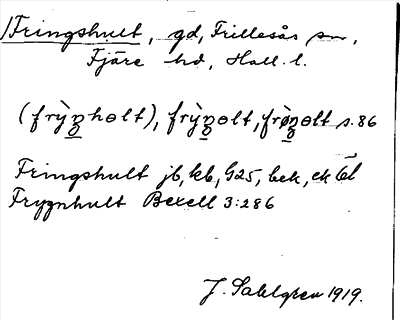 /Fringshult, gd, Frillesås sn,
Fjäre hd, Hall. l.
(frỳŋholt), frỳŋolt, frø̀ŋolt s. 86
Fringshult jb, kb, G25, bek, ek
Frygnhult Bexell 3:286
J. Sahlgren 1919.